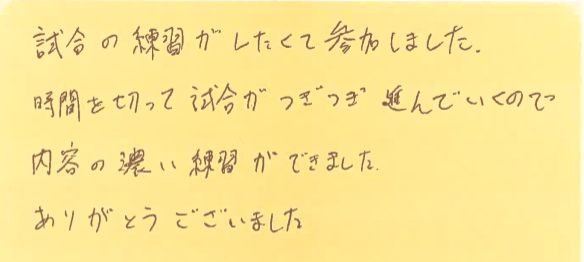 試合の練習がしたくて参加しました.
時間を切って試合がつぎつぎ進んでいくので
内容の濃い練習ができました.
ありがとうございました